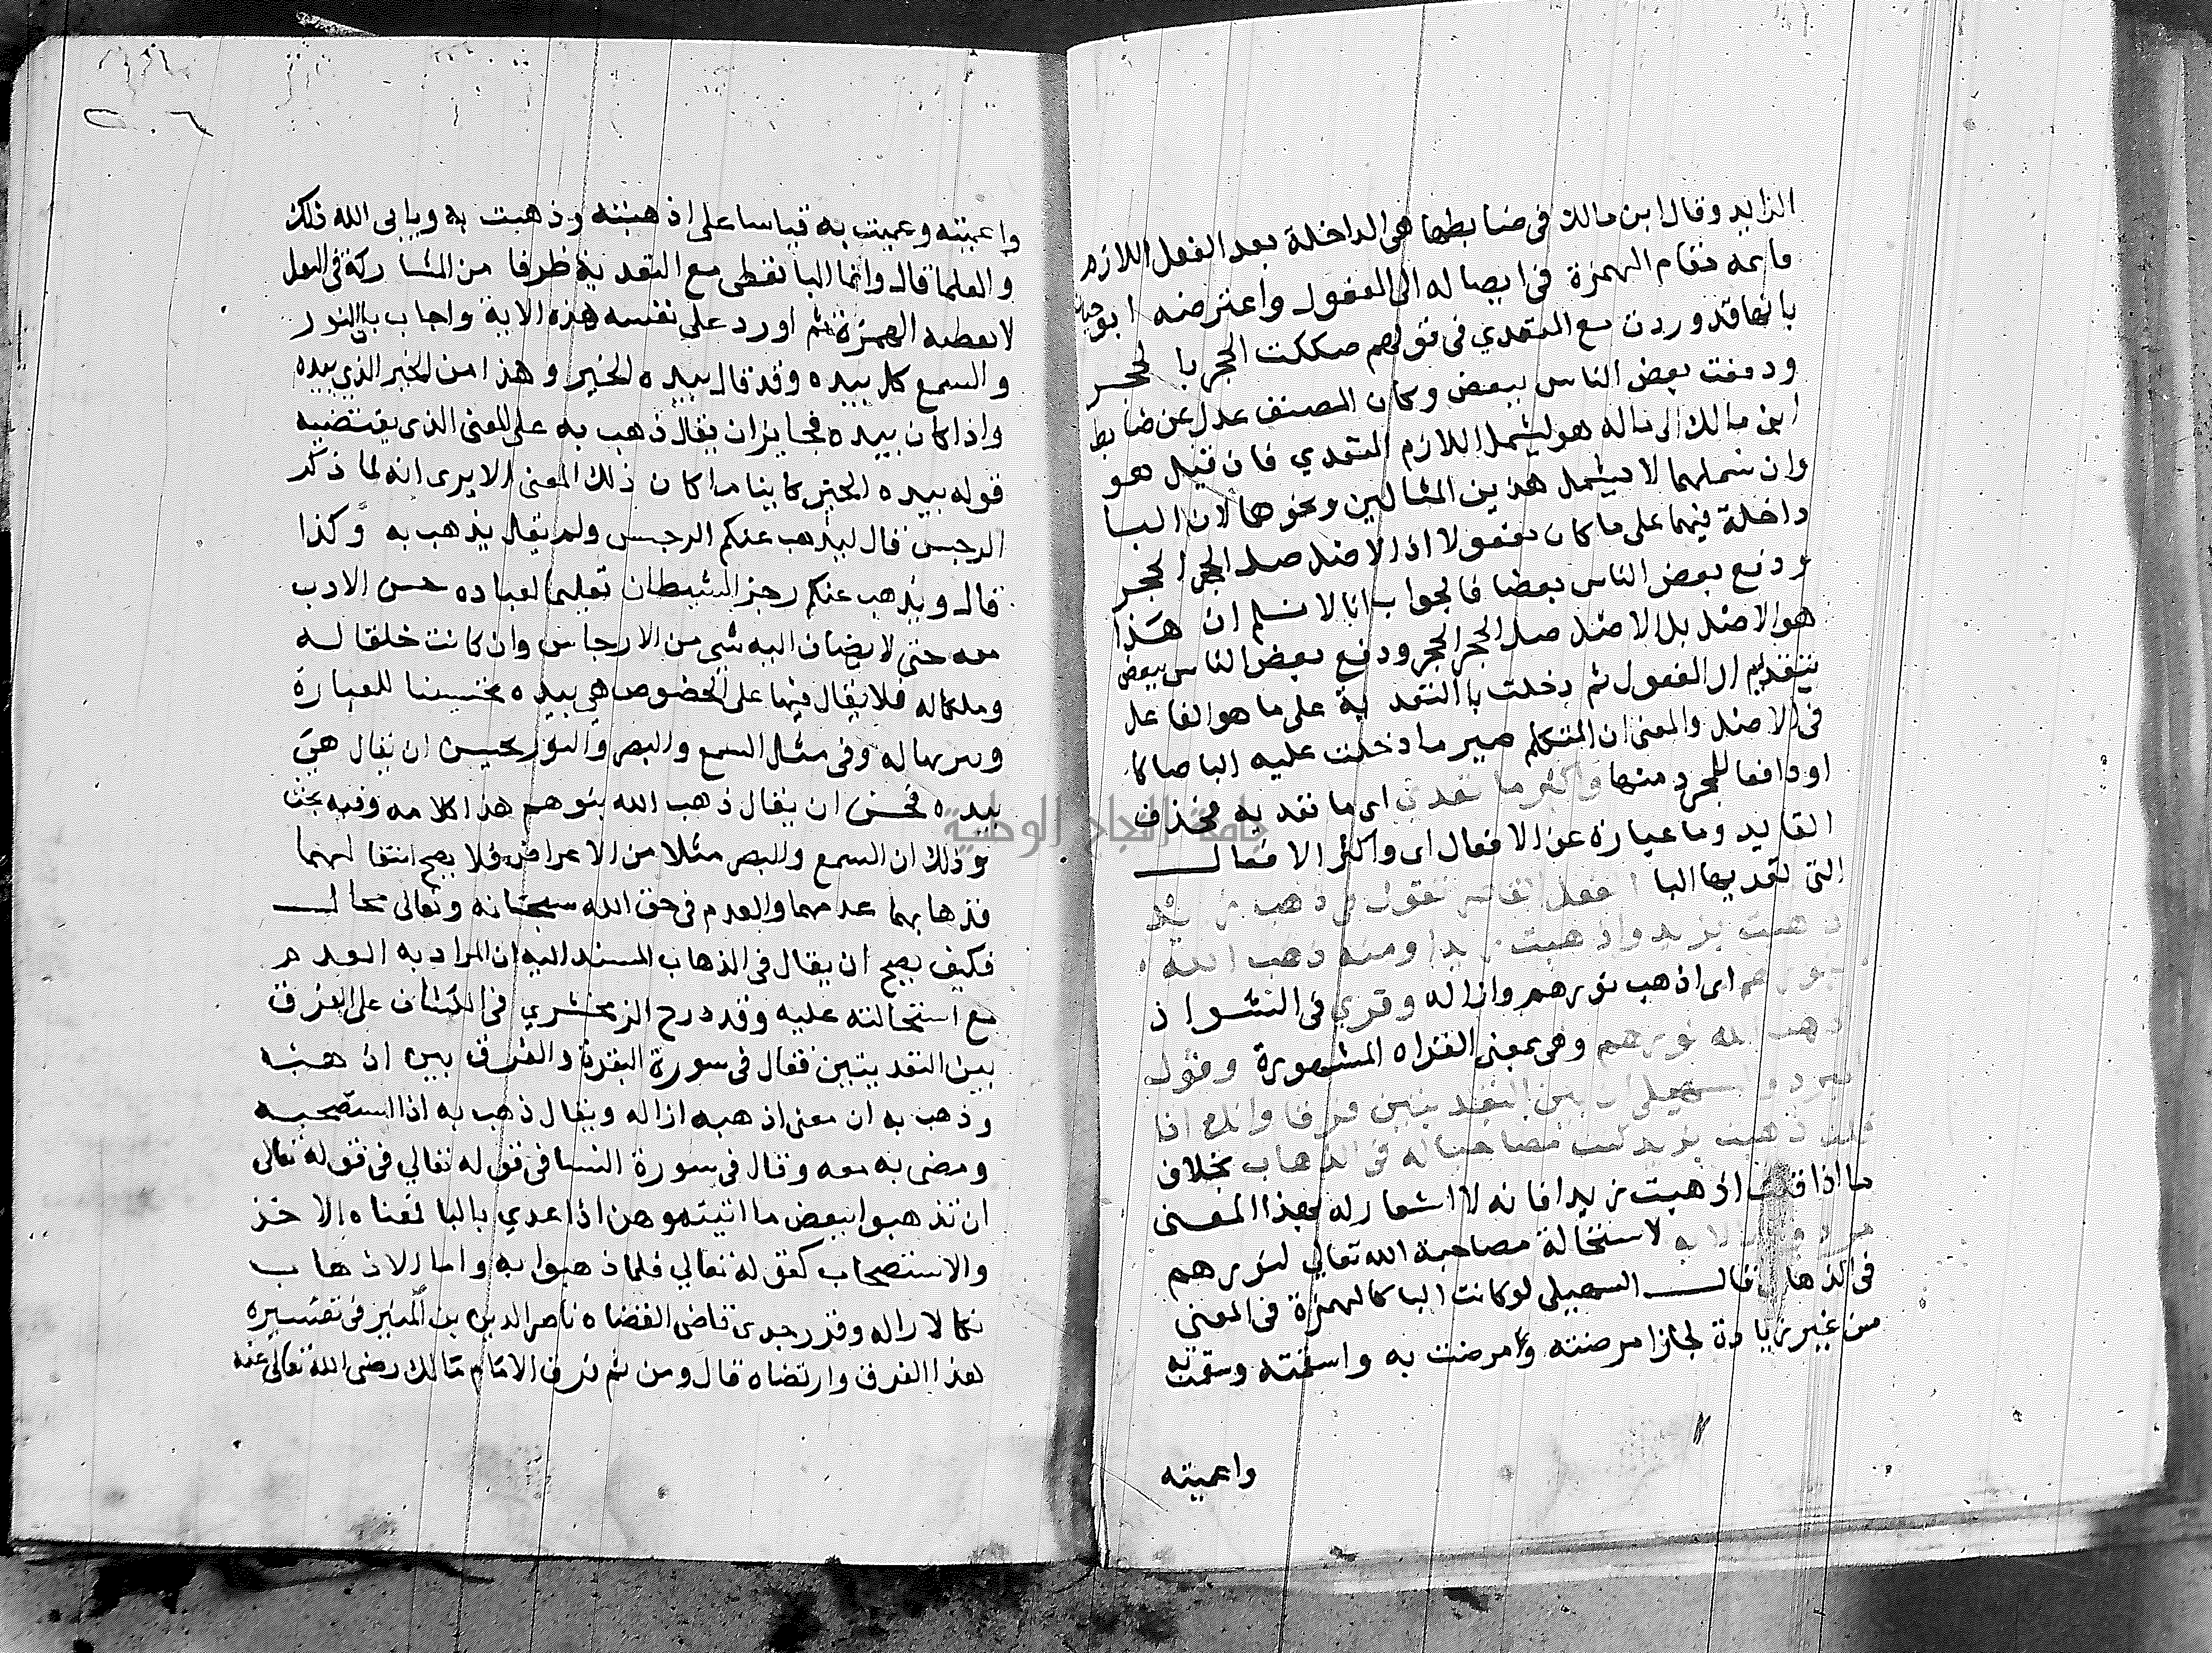 الزايد وقال ابن مالك في ضابطها هي الداخلة بعد الفعل اللازم
قايمه مقام الهمزة في ايصاله الى المفعول واعترضه ابو حيان
بانها قد وردت مع المتعدي في قولهم صككت الحجر بالحجر
ودفعت بعض الناس ببعض وكان المصنف عدل عن ضابط
ابن مالك الى ما له هو ليشمل اللازم المتعدي فان قيل هو
وان شملهما لا يشمل هذين المثالين ونحوهما لان البا
داخلة فيهما على ما كان مفعولا اذ الاصل صك الحجر الحجر
ودفع بعض الناس بعضا فالجواب انا لا نسلم ان هذا
هو الاصل بل الاصل صك الحجر الحجر ودفع بعض الناس بعض
بتقديم المفعول ثم دخلت با التعدية على ما هو الفاعل
في الاصل والمعنى ان المتكلم صير ما دخلت عليه البا صاكا
او دافعا للمجرد منها واكثر ما تعدي اي ما تعديه فحذف
العايد وما عبارة عن الافعال اي واكثر الافعال
التي تعديها البا الفعل القاصر تقول في ذهب زيد
ذهبت بزيد واذهبت زيدا ومنه ذهب الله
بنورهم اي اذهب نورهم وازاله وقري في الشواذ
اذهب الله نورهم وهي بمعنى القراه المشهورة وقول
المبرد والسهيلي ان بين التعديتين فرقا وانك اذا
قلت ذهبت بزيد كنت مصاحبا له في الذهاب بخلاف
ما اذا قلت اذهبت زيدا فانه لا اشعار له بهذا المعنى
مردود بالاية لاستحالة مصاحبة الله تعالى لنورهم
في الذهاب فقال السهيلي لو كانت البا كالهمزة في المعنى
من غير زيادة لجاز امرضته وامرضت به واسقمته وسقمت به
واعميته
٢٠٦
واعميته وعميت به قياسا على اذهبته وذهبت به ويابى الله ذلك
والعلما قال وانما البا تعطى مع التعدية طرفا من المشاركة في الفعل
لا تعطيه الهمزة ثم اورد على نفسه هذه الاية واجاب بان النور
والسمع كل بيده وقد قال بيده الخير وهذا من الخير الذي بيده
واذا كان بيده فجايز ان يقال ذهب به على المعنى الذي يقتضيه
قوله بيده الخير كاينا ما كان ذلك المعنى الا يرى انه لما ذكر
الرجس قال ليذهب عنكم الرجس ولم يقل يذهب به وكذا
قال ويذهب عنكم رجز الشيطان تعليما لعباده حسن الادب
معه حتى لا يضاف اليه شي من الارجاس وان كانت خلقا له
وملكا له فلا يقال فيها على الخصوص هي بيده تحسينا للعبارة
وتنزيها له وفي مثل السمع والبصر والنور يحسن ان يقال هي
بيده فحسن ان يقال ذهب الله بنورهم هذا كلامه وفيه بحث
وذلك ان السمع والبصر مثلا من الاعراض فلا يصح انتقالهما
فذهابهما عدمهما والعدم في حق الله سبحانه وتعالى محال
فكيف يصح ان يقال في الذهاب المسند اليه ان المراد به العدم
مع استحالته عليه وقد درج الزمخشري في الكشاف على الفرق
بين التعديتين فقال في سورة البقرة والفرق بين اذهبه
وذهب به ان معنى اذهبه ازاله ويقال ذهب به اذا استصحبه
ومضى به معه وقال في سورة النسا في قوله تعالي في قوله تعالى
ان تذهبوا ببعض ما اتيتموهن اذا عدي بالبا فمعناه الاخذ
والاستصحاب كقوله تعالي فلما ذهبوا به واما الاذهاب
فكالازاله وقرر جدي قاضي القضاه ناصر الدين بن المنير في تفسيره
هذا الفرق وارتضاه قال ومن ثم فرق الامام مالك رضي الله تعالى عنه
جامعة النجاح الوطنية